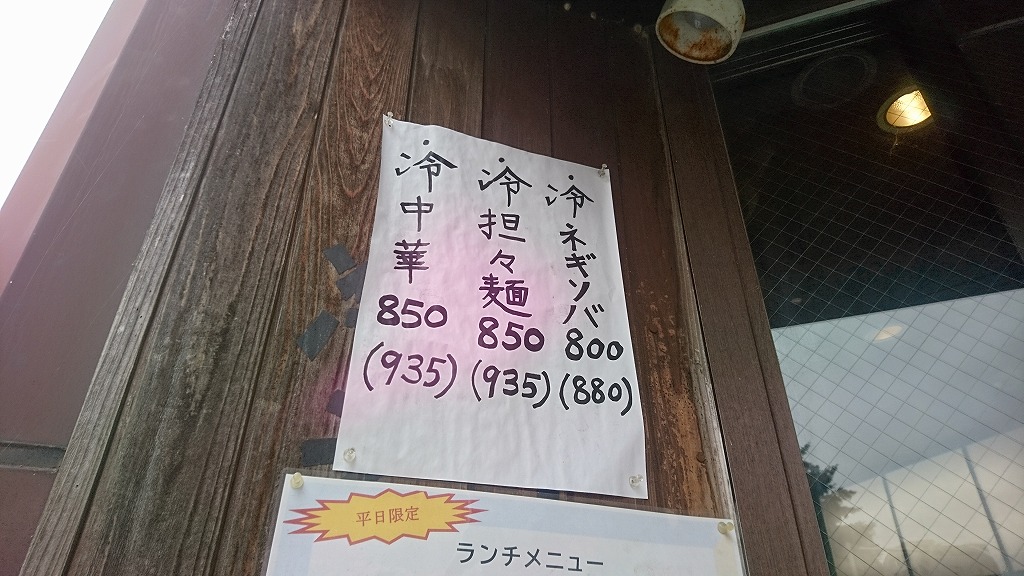 ・冷ネギソバ
800
(880)
・冷担々麺
850
(935)
・冷中華
850
(935)
平日限定
ランチメニュー